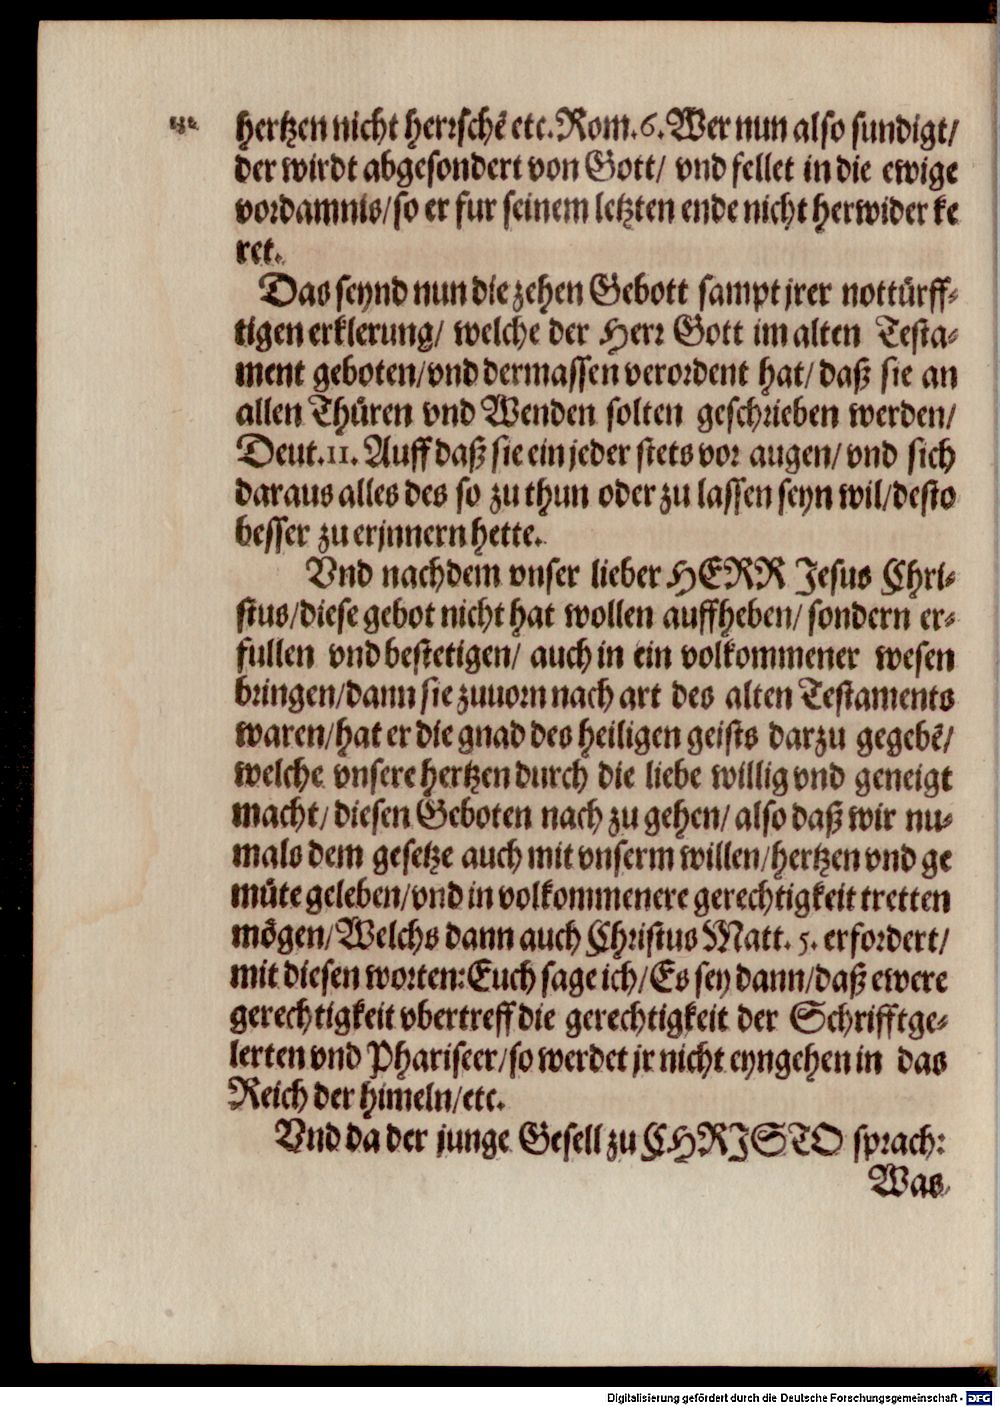 hertzen nicht herrschē etc. Rom. 6. Wer nun also sundigt/
der wirdt abgesondert von Gott/ vnd fellet in die ewige
vordamnis/ so er fur seinem letzten ende nicht herwider ke
ret.
Das seynd nun die zehen Gebott sampt jrer nottürff-
tigen erklerung/ welche der Herr Gott im alten Testa-
ment geboten/ vnd dermassen verordent hat/ daß sie an
allen Thüren vnd Wenden solten geschrieben werden/
Deut. 11. Auff daß sie ein jeder stets vor augen/ vnd sich
daraus alles des so zu thun oder zu lassen seyn wil/ desto
besser zu erjnnern hette.
Vnd nachdem vnser lieber HERR Jesus Chri-
stus/ diese gebot nicht hat wollen auffheben/ sondern er-
fullen vnd bestetigen/ auch in ein volkommener wesen
bringen/ dann sie zuuorn nach art des alten Testaments
waren/ hat er die gnad des heiligen geists darzu gegebē/
welche vnsere hertzen durch die liebe willig vnd geneigt
macht/ diesen Geboten nach zu gehen/ also daß wir nu-
mals dem gesetze auch mit vnserm willen/ hertzen vnd ge
müte geleben/ vnd in volkommenere gerechtigkeit tretten
mögen/ Welchs dann auch Christus Matt. 5. erfordert/
mit diesen worten: Euch sage ich/ Es sey dann/ daß ewere
gerechtigkeit vbertreff die gerechtigkeit der Schrifftge-
lerten vnd Phariseer/ so werdet jr nicht eyngehen in das
Reich der himeln/ etc.
Vnd da der junge Gesell zu CHRISTO sprach:
Was
Digitalisierung gefördert durch die Deutsche Forschungsgemeinschaft - DFG